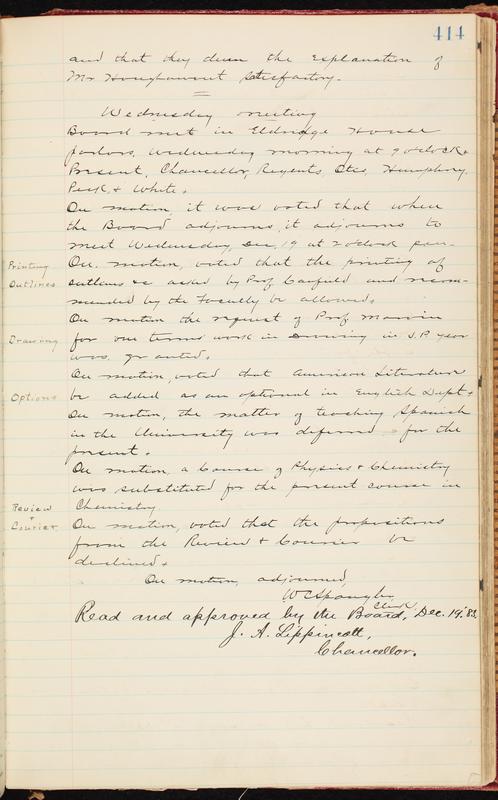 414
and that they deem the explanation of
Mr Houghawout satisfactory.
Wednesday meeting
Board met in Eldridge House
parlors, Wednesday morning at 9 oclock.
Present, Chancellor, Regents, Otis, Humphrey,
Peck, & White.
On motion, it was voted that when
the Board adjourns, it adjourns to
meet Wednesday, Dec, 19 at 2 oclock p.m.
Printing Outlines
On motion, voted that the printing of
outlines &c asked by Prof Canfield and recom-
mended by the Faculty be allowed.
On motion the request of Prof Marvin
Drawing
for one terms work in drawing in J.P. year
was granted.
On motion, voted that American Literature
Options
be added as an optional in English Dept.
On motion, the matter of teaching Spanish
in the University was deferred for the
present.
On motion, a Course of Physics & Chemistry
was substituted for the present course in
Chemistry
Review + Courier
On motion, voted that the propositions
from the Review & Courier be
declined.
On motion, adjourned,
W C Spangler
Clerk
Read and approved by the Board, Dec. 19, '83.
J. A. Lippincott,
Chancellor.